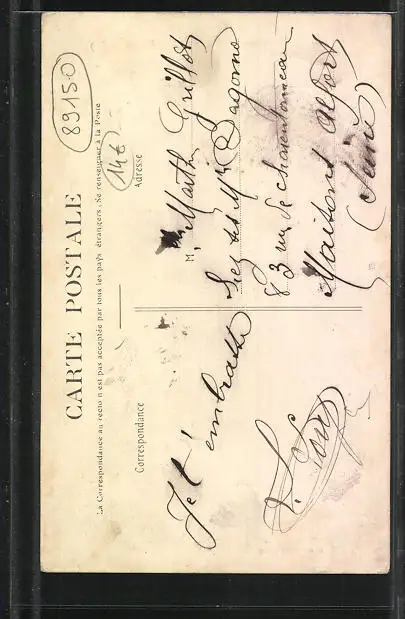 89150
14€
CARTE POSTALE
La Correspondance au recto n'est pas acceptée par tous les pays étrangers. Se renseigner à la Poste
Correspondance
Adresse
Je t'embrasse
M. Martin Grillot
chez Mr Dagorno
83 rue de Charentonneau
Maisons Alfort
(Seine)